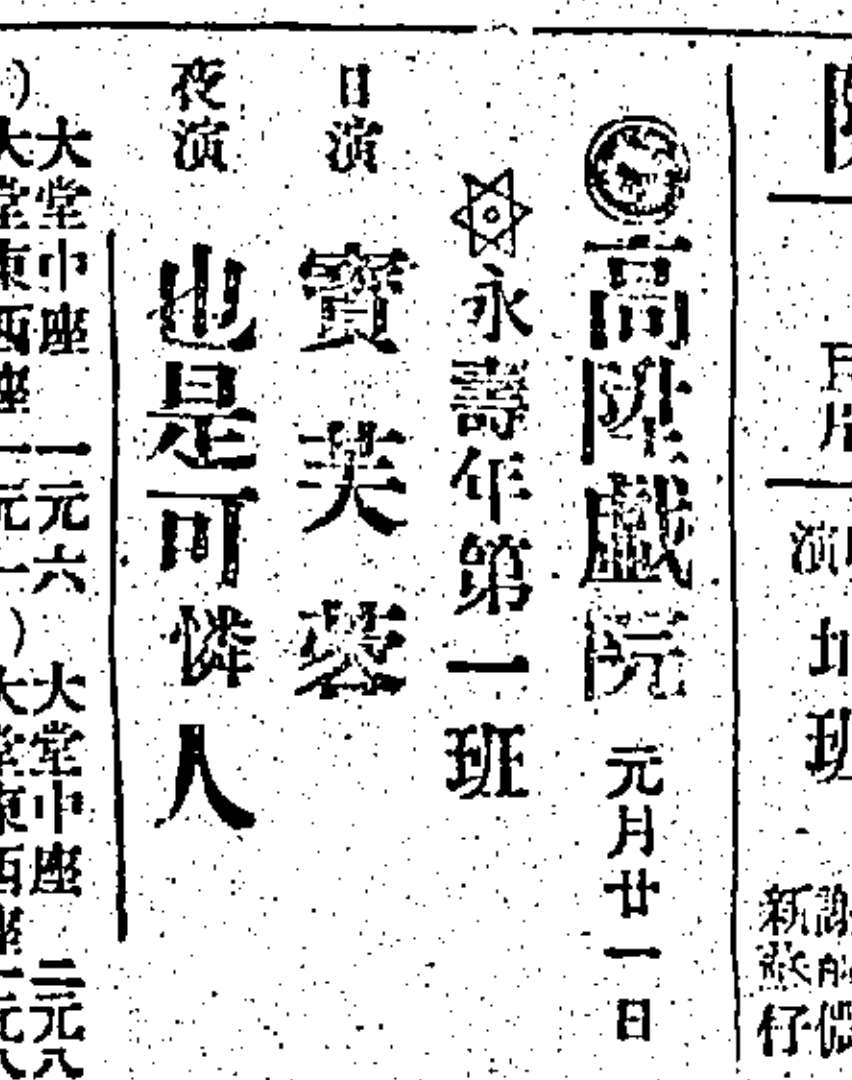 高陞戲院 元月廿一日
永壽年第一班
日演 寶芙蓉
夜演 也是可憐人
大堂中座 一元六
大堂中座 二元八
大堂東西座 一元二
大堂東西座 一元八